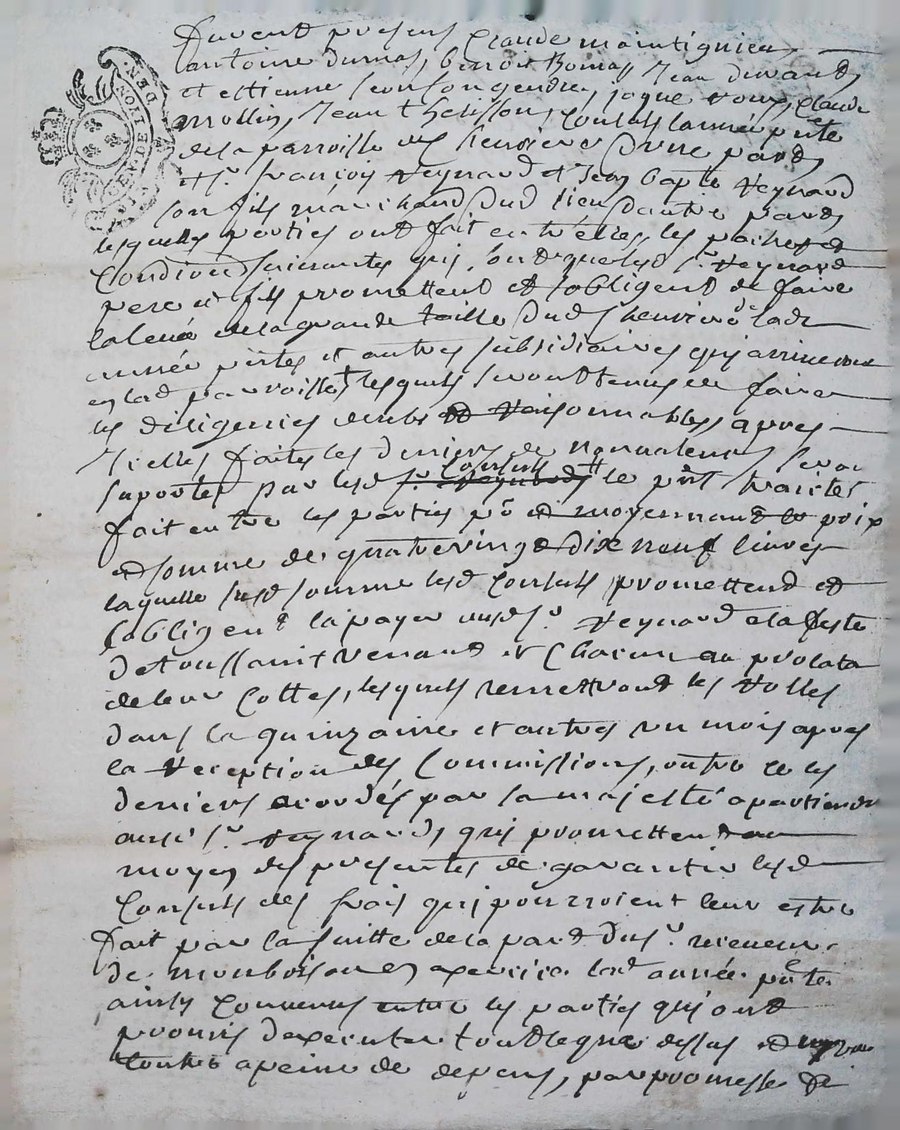 GEN. DE LION DEN.
Furent presens Claude
antoine dumas, benoit Jean durand
et estienne Claude
mollin, Jean Consuls lannée pnte
de la parroisse de dune part
et sr. françois Reynard et Jean bapte Reynard
son fils marchand dud lieu dautre part
lesquelles parties ont fait entrelles les paches et
Condions suivantes qui, sont que lesd srs. Reynard
pere et fils promettent et sobligent de faire
la levé de la grande taille dud de lad
année pnte et autres subsidiaires qui arriveront
en lad parroisse + lesquels seront tenus de faire
les diligences deubes et Raisonnables, apres
Icelles faites les deniers de seront
suportes par lesd sr. Reynard Consuls le pnt traitté
fait entre les parties pnt et moyennant le prix
et somme de quatrevingt dix neuf livres
laquelle susd somme lesd Consuls promettent et
sobligent la payer ausd srs Reynard a la feste
de toussaint venant et Chacun au prolata
de leur Cottes, lesquels remettront les Rolles
dans la quinzaine et autres un mois apres
la Reception des Commissions, outre ce les
deniers acordés par sa majesté apartiendr
ausd srs. Reynards, qui promettent au
moyen des presentes de garantir lesd
Consuls des frais qui pourroient leur estre
fait par la suitte de la part du sr. receveur
de en exercice lad année pnte
ainsy Convenus entre les parties qui ont
promis dexecuter tout le que dessus et
a peine de depens, par promesse de